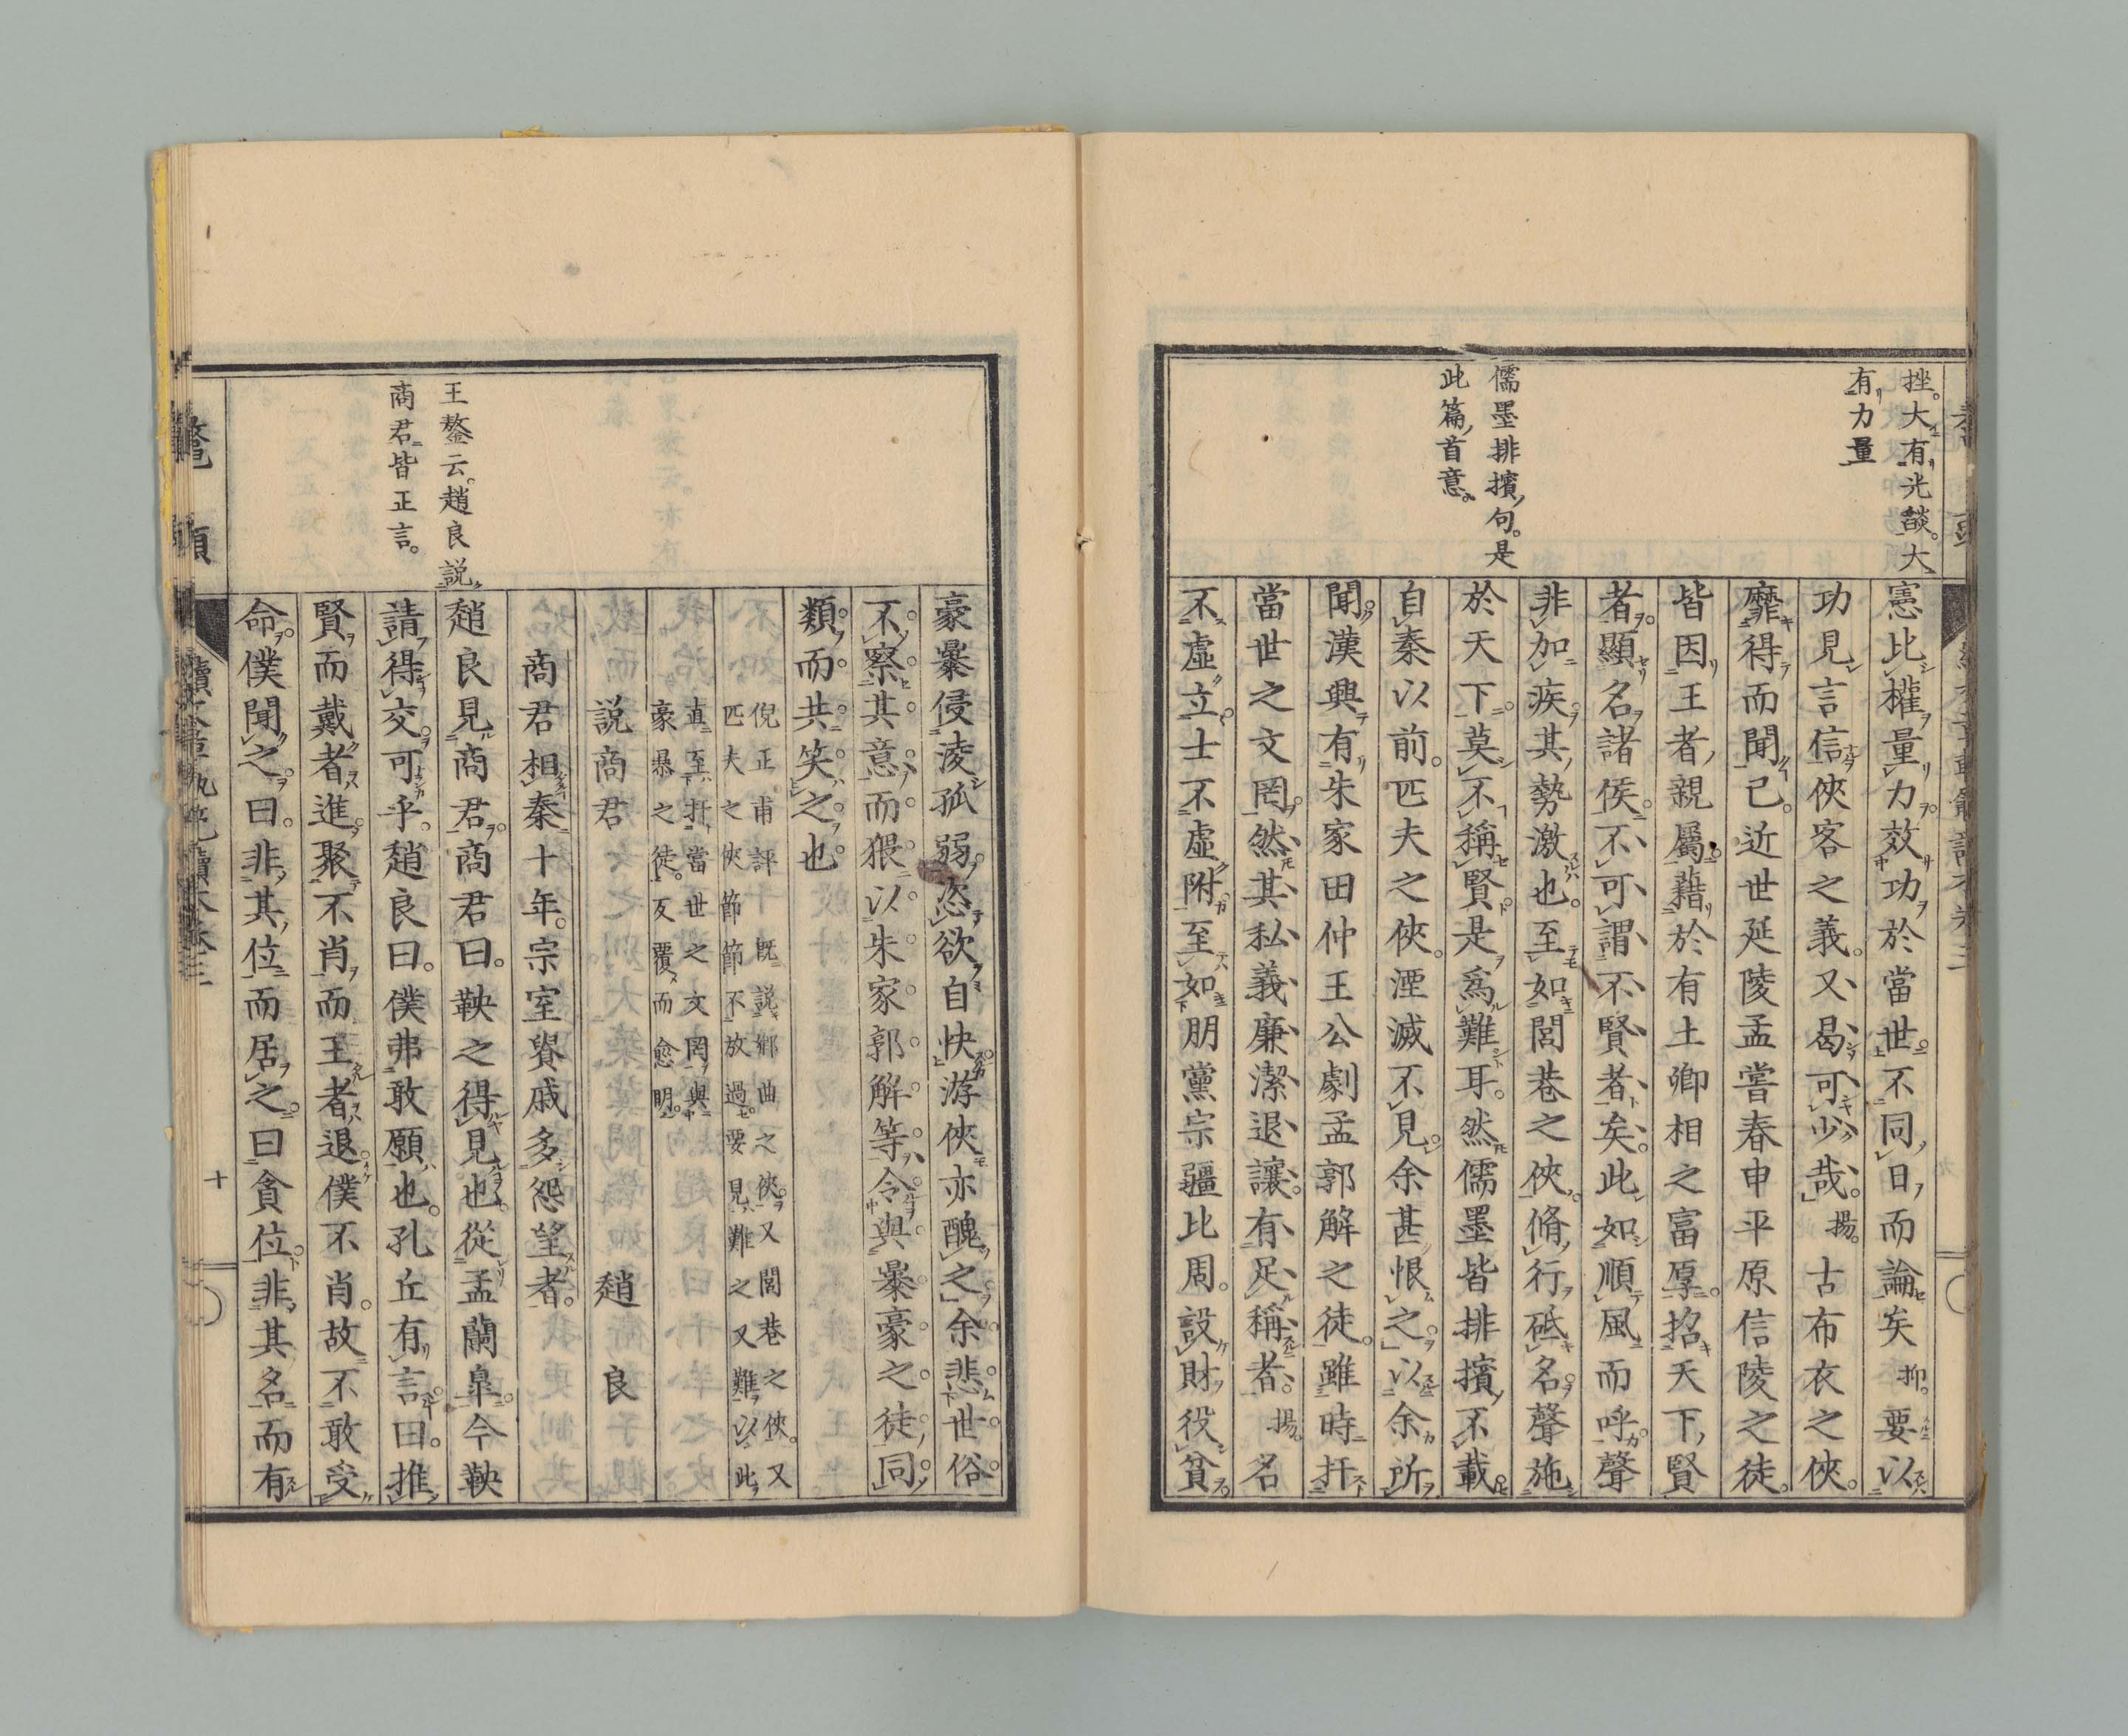 挫。大有光燄。大
有力量
儒墨排擯句。是
此篇首意。
憲比權量力效功於當世不同日而論矣抑。要以
功見言信俠客之義。又曷可少哉。揚。古布衣之俠。
靡得而聞已。近世延陵孟嘗春申平原信陵之徒。
皆因王者親屬藉於有土卿相之富厚。招天下賢
者顯名諸侯。不可謂不賢者矣。此如順風而呼。聲
非加疾。其勢激也。至如閭巷之俠。脩行砥名。聲施
於天下。莫不稱賢。是爲難耳。然儒墨皆排擯不載
自秦以前。匹夫之俠。湮滅不見。余甚恨之。以余所
聞。漢興有朱家田仲王公劇孟郭解之徒。雖時扞
當世之文罔。然其私義廉潔退讓。有足稱者。揚。名
不虛立。士不虛附。至如朋黨宗疆比周。設財役貧
豪暴侵淩孤弱。恣欲自快。游俠亦醜之。余悲世俗
不察其意。而猥以朱家郭解等。令與暴豪之徒同
類。而共笑之也。
倪正甫評 既說鄉曲之俠。又閭巷之俠。又
匹夫之俠節節不放過。要見難之又難。以此
直至扞當世之文罔。與
豪暴之徒。反覆而愈明。
說商君 趙良
商君相秦十年。宗室貴戚多怨望者。
趙良見商君。商君曰。鞅之得見也。從孟蘭皐。今鞅
請得交。可乎。趙良曰。僕弗敢願也。孔丘有言曰。推
賢而戴者進。聚不肖而王者退。僕不肖。故不敢受
命。僕聞之。曰。非其位而居之。曰貪位。非其名而有
王鏊云。趙良說
商君。皆正言。
十